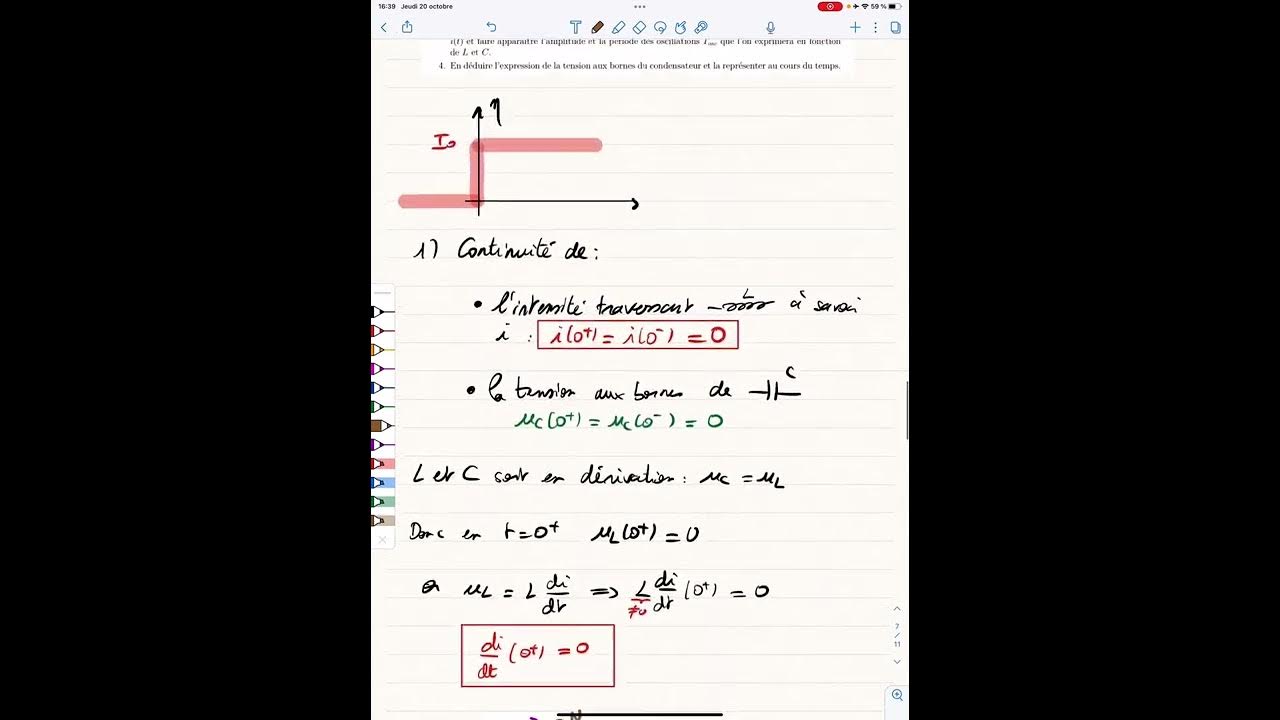 16:39 Jeudi 20 octobre
59 %
i(t) et faire apparaître l'amplitude et la période des oscillations que l'on exprimera en fonction
de L et C.
4. En déduire l'expression de la tension aux bornes du condensateur et la représenter au cours du temps.
η
I₀
1) Continuité de :
• l'intensité traversant L à savoir
i : i(0⁺) = i(0⁻) = 0
• la tension aux bornes de C
u_C(0⁺) = u_C(0⁻) = 0
L et C sont en dérivation : u_C = u_L
Donc en t=0⁺ u_L(0⁺) = 0
Or u_L = L di/dt ⟹ L di/dt (0⁺) = 0
≠0
di/dt (0⁺) = 0
7
/
11